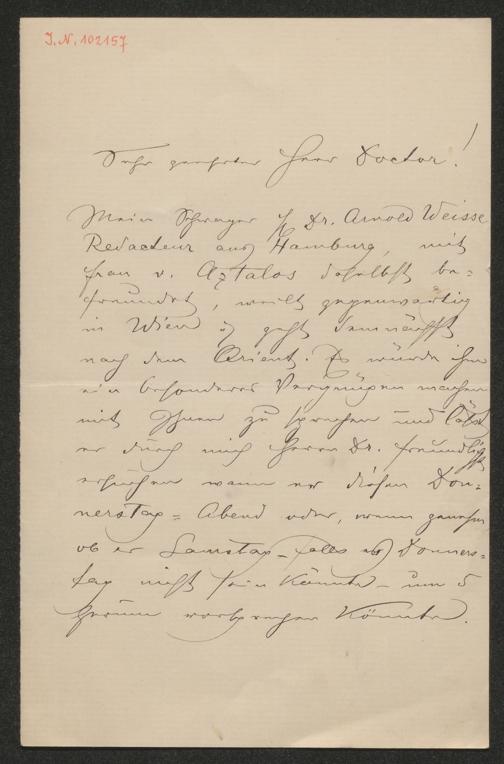 I.N. 102157
Sehr geehrter Herr Doctor!
Mein Schwager H Dr. Arnold Weisse
Redacteur aus Hamburg, mit
Frau v. Asztalos daselbst be=
freundet, weilt gegenwärtig
in Wien u geht demnächst
nach dem Orient. Es würde ihm
ein besonderes Vergnügen machen
mit Ihnen zu sprechen und läßt
er durch mich Herrn Dr. freundlichst
ersuchen wann er diesen Don-
nerstag = Abend oder, wenn genehm
ob er Samstag - falls es Donners=
tag nicht sein könnte - um 5
herum vorsprechen könnte.